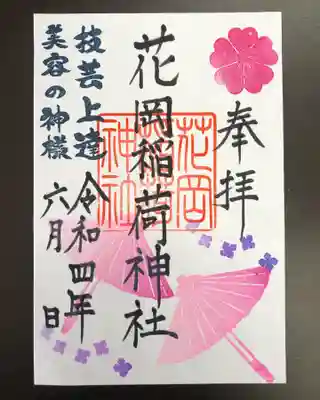 奉拝
花岡稲荷神社
花岡
神社
令和四年
六月 日
技芸上達
美容の神様